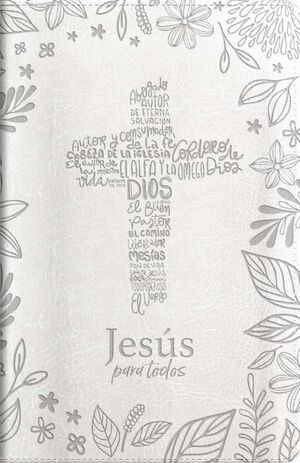 Abogado
AUTOR
DE ETERNA
SALVACIÓN
Autor y consumador
de la fe
CABEZA DE LA IGLESIA Cordero de Dios
El autor de la vida EL ALFA Y LA OMEGA
DIOS
El Buen
Pastor
EL CAMINO
Libertador
mesías
PAN DE VIDA
TODOPODEROSO
El Verbo
Jesús
para todos